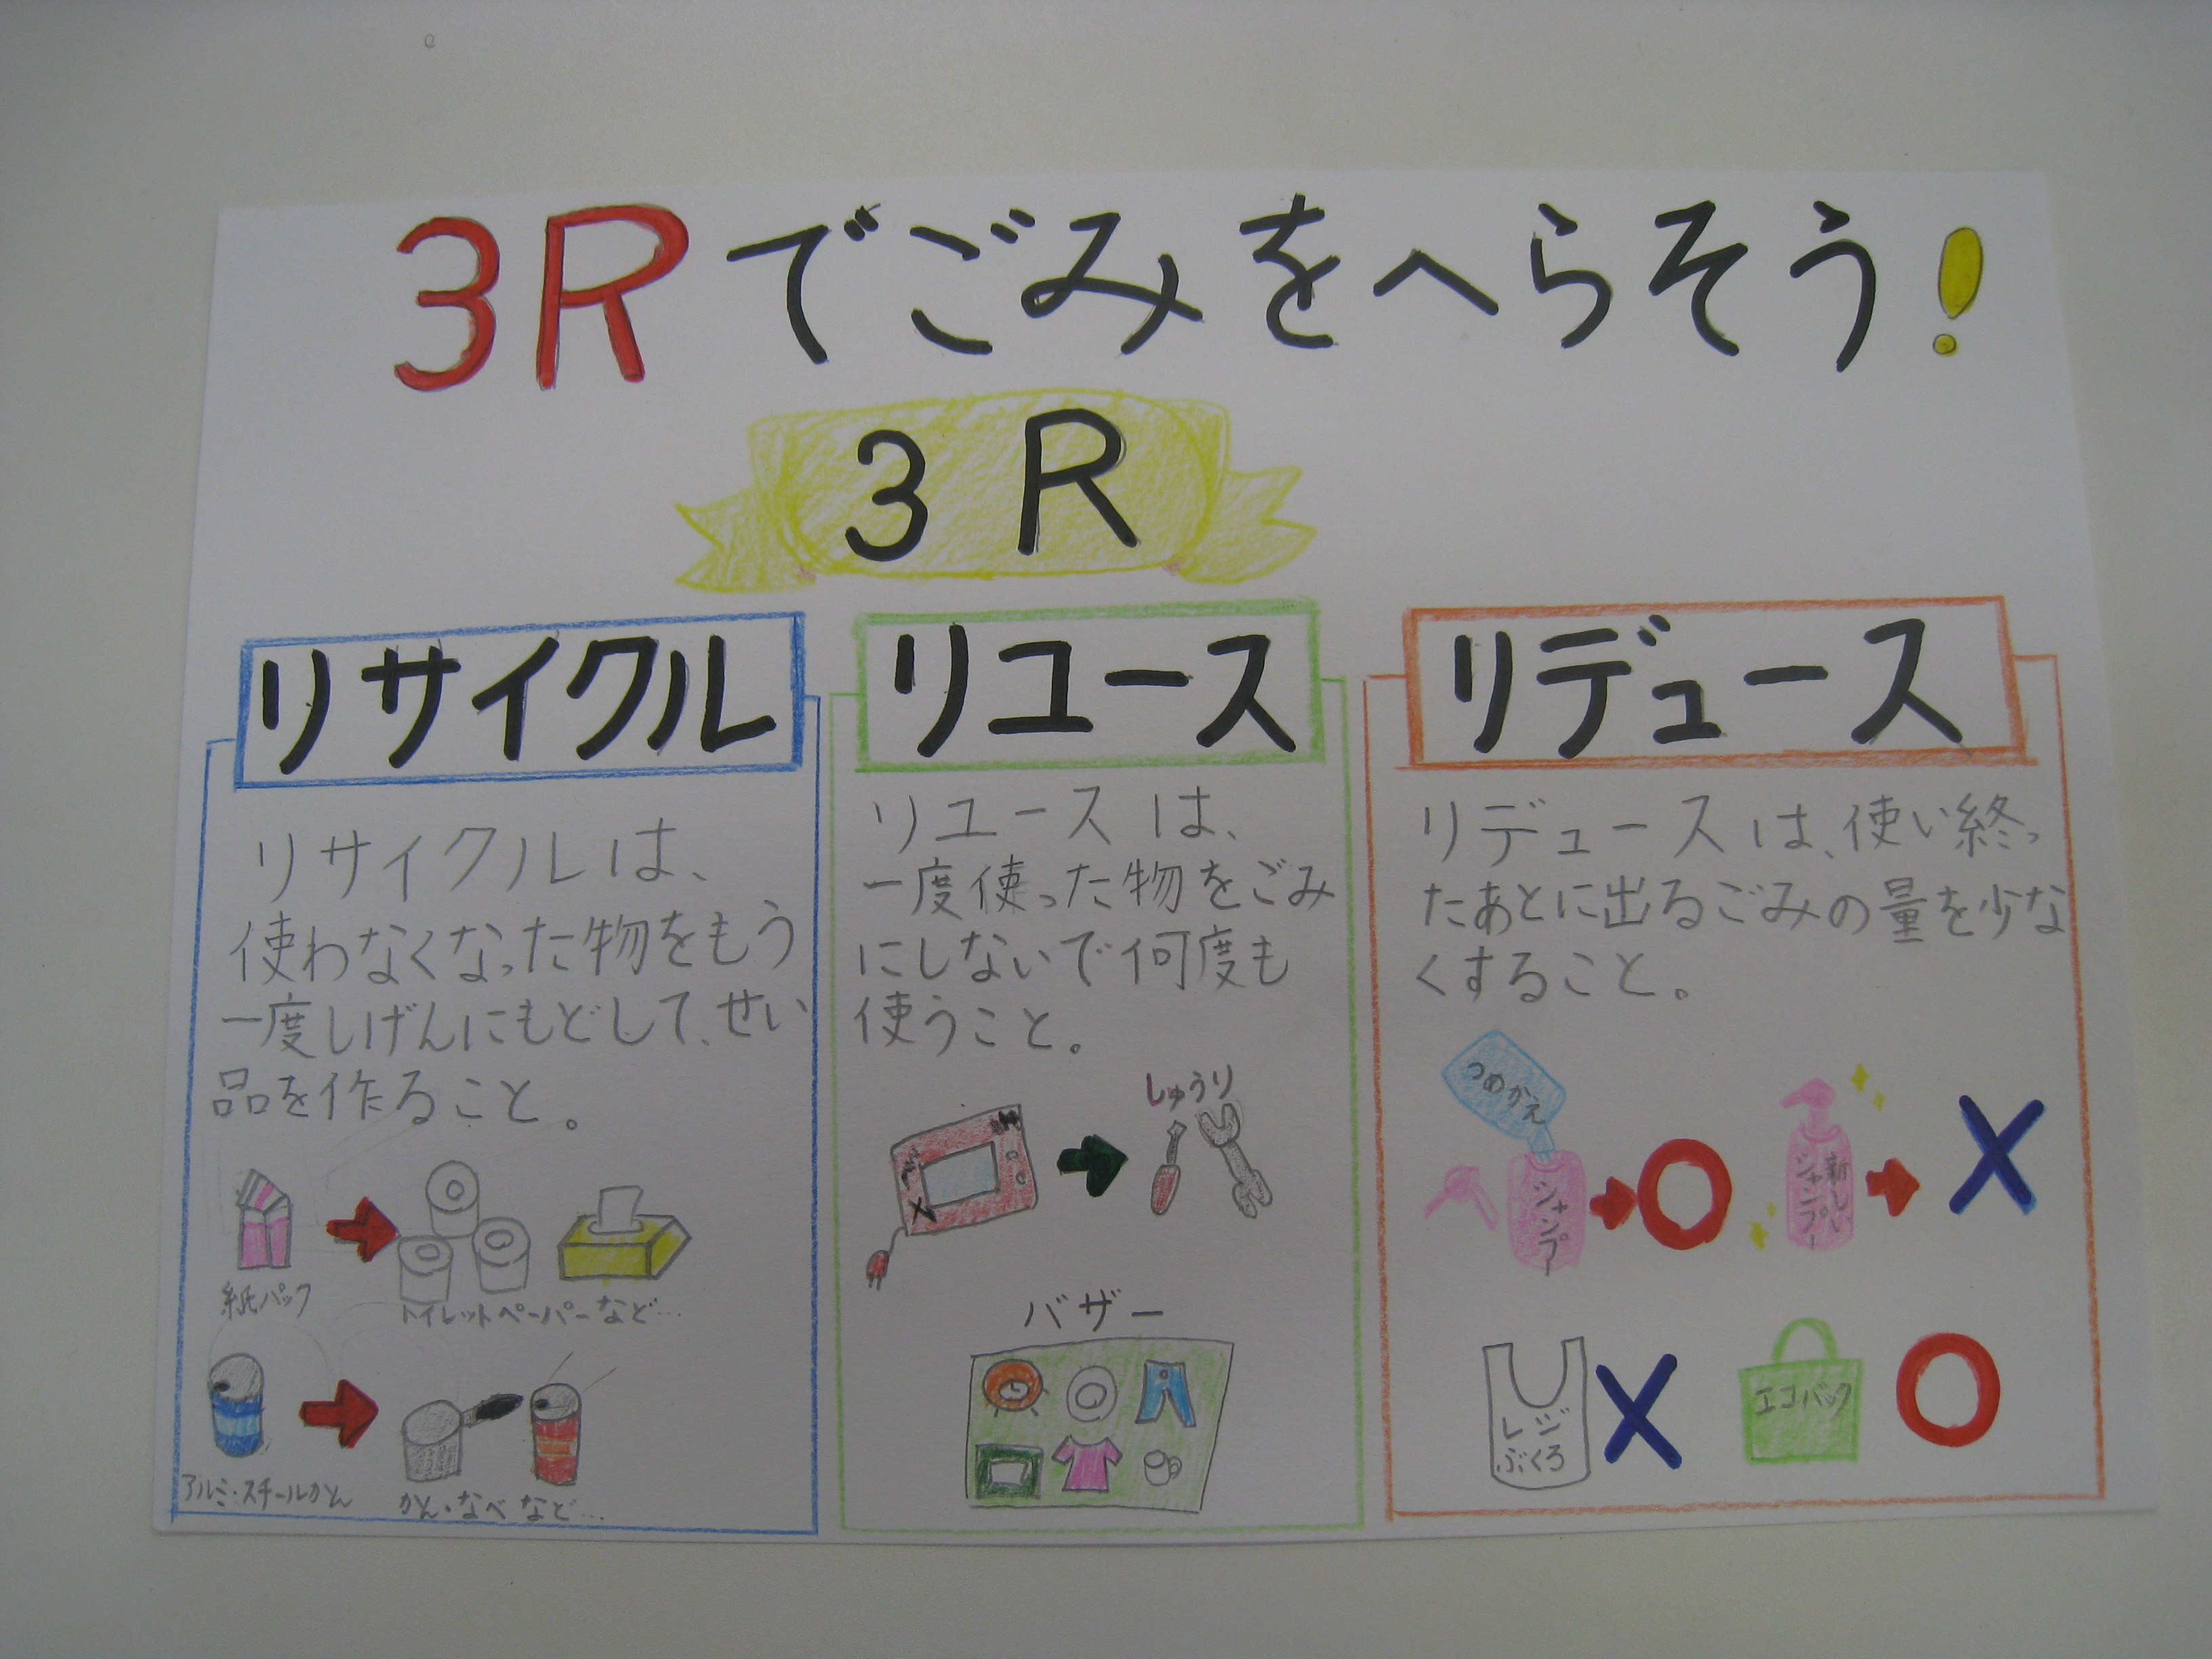 3Rでごみをへらそう!
3R
リサイクル
リサイクルは、
使わなくなった物をもう
一度しげんにもどして、せい
品を作ること。
紙パック
トイレットペーパーなど…
アルミ・スチールかん
かん・なべなど…
リユース
リユースは、
一度使った物をごみ
にしないで何度も
使うこと。
しゅうり
バザー
リデュース
リデュースは、使い終っ
たあとに出るごみの量を少な
くすること。
つめかえ
シャンプー
新しい
シャンプー
レジ
ぶくろ
エコバック